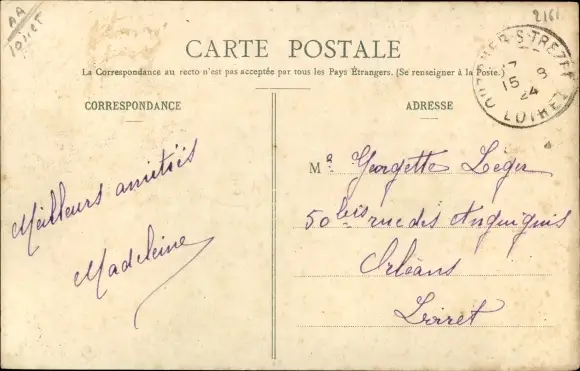 AA
2161
CARTE POSTALE
La Correspondance au recto n'est pas acceptée par tous les Pays Étrangers. (Se renseigner à la Poste.)
CORRESPONDANCE
ADRESSE
OUZOUER-S-TREZEE
17 8
15
24
LOIRET
Meilleurs amitiés
Madeleine
Melle Georgette Leger
50 bis rue des Anguignis
Orléans
Loiret